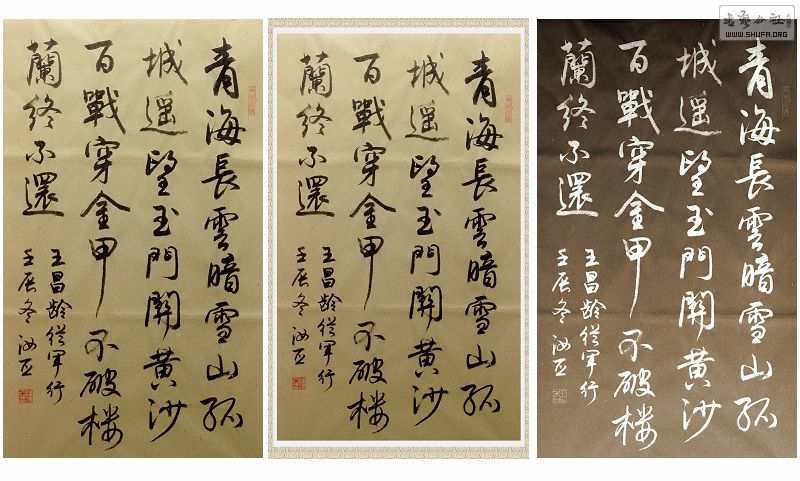 青海長雲暗雪山孤
城遥望玉門關黄沙
百戰穿金甲不破楼
蘭终不還
王昌龄從軍行
壬辰冬
青海長雲暗雪山孤
城遥望玉門關黄沙
百戰穿金甲不破楼
蘭终不還
王昌龄從軍行
壬辰冬
WWW.SHUFA.ORG
青海長雲暗雪山孤
城遥望玉門關黄沙
百戰穿金甲不破楼
蘭终不還
王昌龄從軍行
壬辰冬